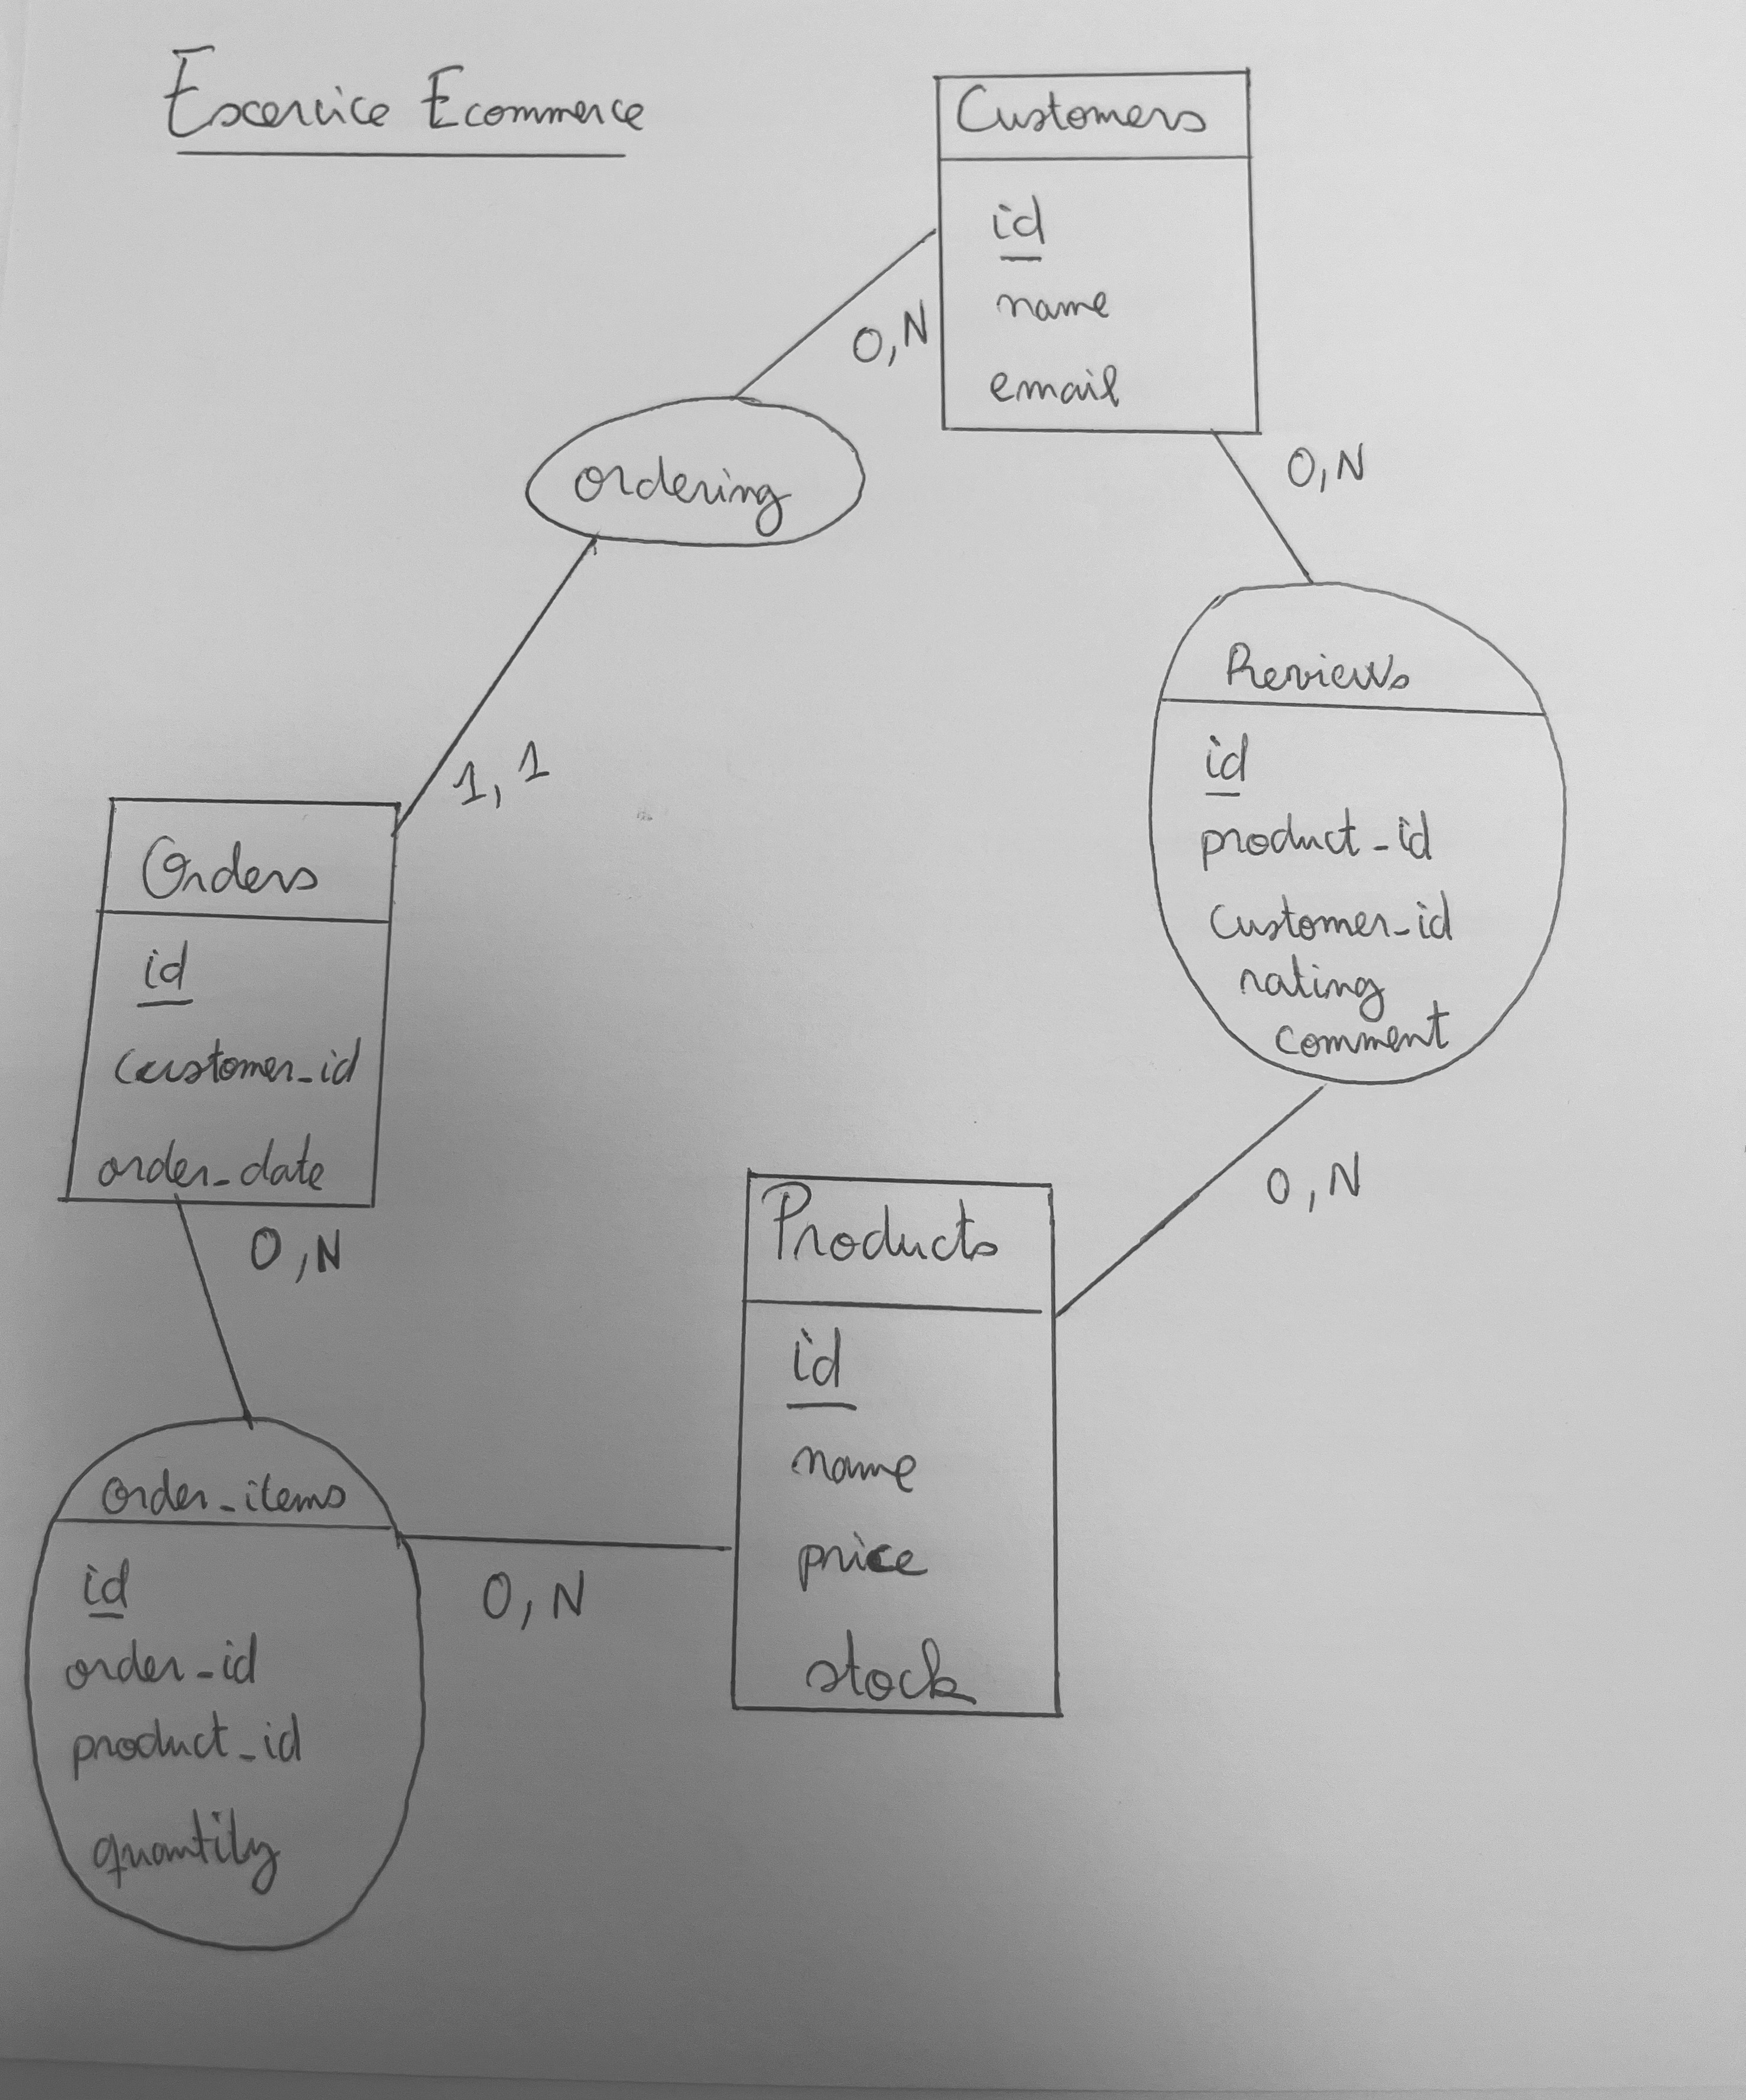 Excercice Ecommerce
Customers
id
name
email
0,N
ordering
0,N
Reviews
id
product_id
customer_id
rating
comment
1,1
Orders
id
customer_id
order_date
0,N
0,N
Products
id
name
price
stock
order_items
id
order_id
product_id
quantity
0,N